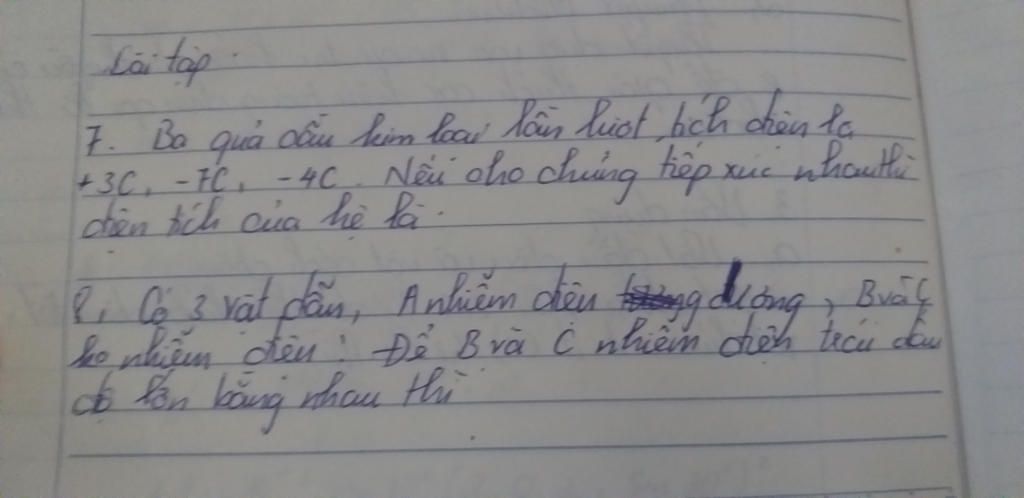 Bài tập.
7. Ba quả cầu kim loại lần lượt tích điện là
+3C, -7C, -4C. Nếu cho chúng tiếp xúc nhau thì
điện tích của hệ là.
8. Có 3 vật dẫn, A nhiễm điện dương, B và C
ko nhiễm điện. Để B và C nhiễm điện trái dấu
độ lớn bằng nhau thì